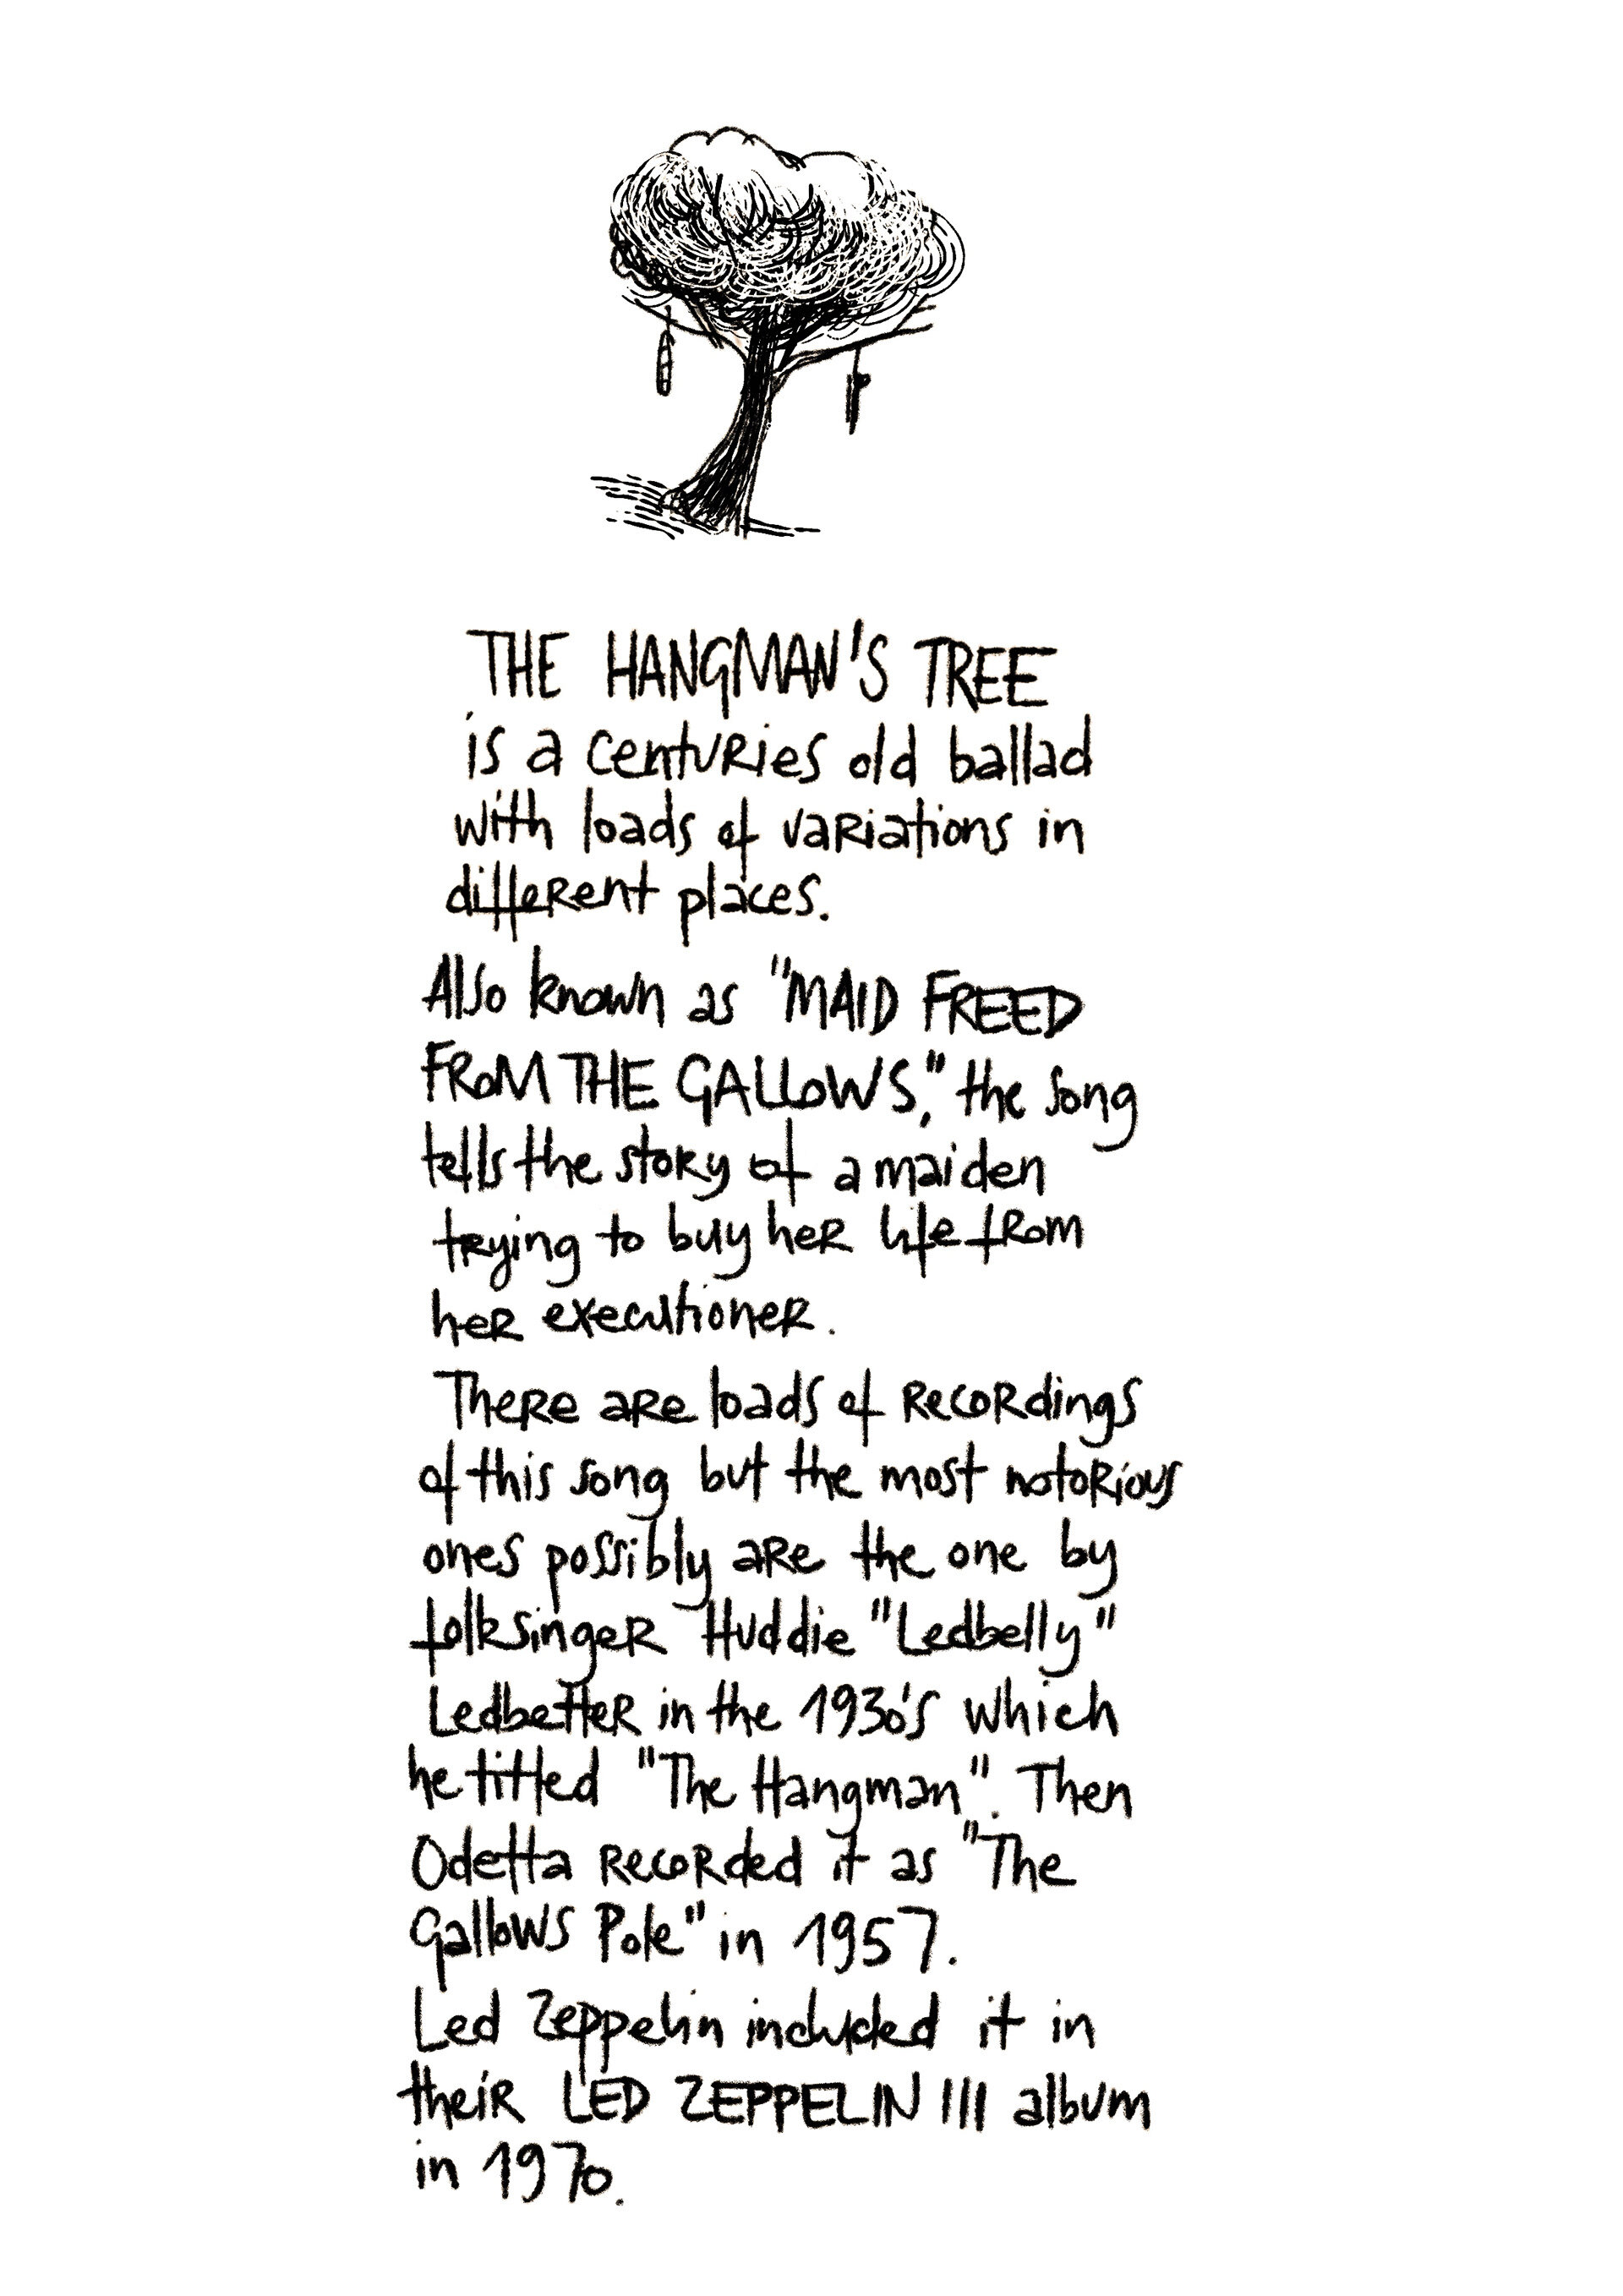 THE HANGMAN'S TREE
is a centuries old ballad
with loads of variations in
different places.
Also known as "MAID FREED
FROM THE GALLOWS," the song
tells the story of a maiden
trying to buy her life from
her executioner.
There are loads of recordings
of this song but the most notorious
ones possibly are the one by
folksinger Huddie "Ledbelly"
Ledbetter in the 1930's which
he titled "The Hangman". Then
Odetta recorded it as "The
Gallows Pole" in 1957.
Led Zeppelin included it in
their LED ZEPPELIN III album
in 1970.